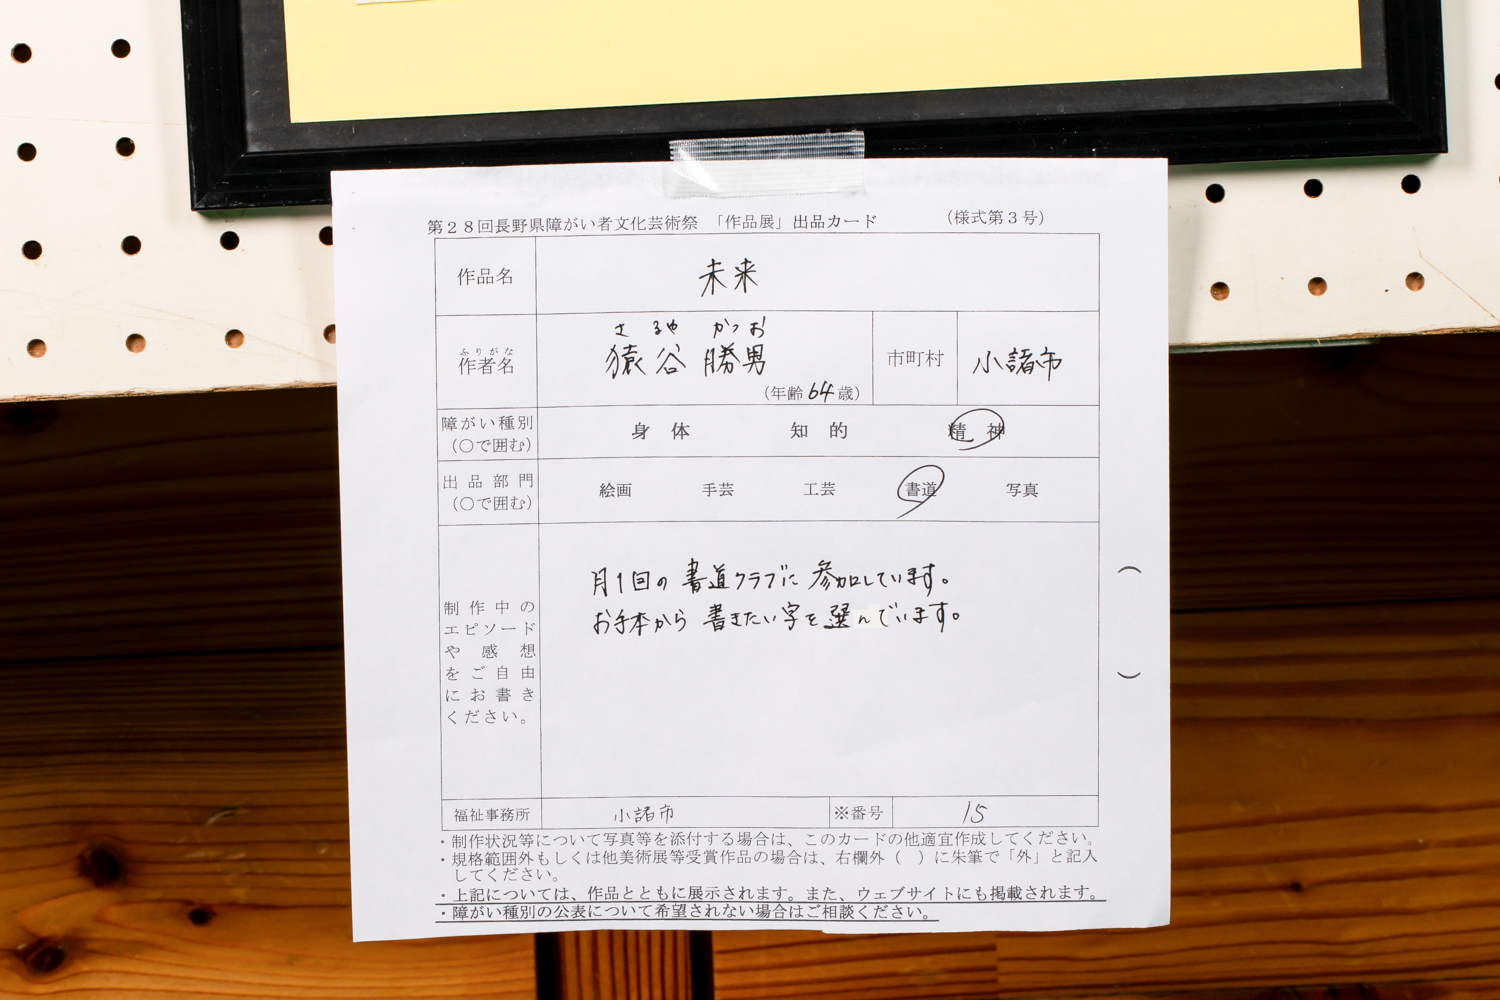 第２８回長野県障がい者文化芸術祭 「作品展」出品カード （様式第３号）
作品名 未来
さるや かつお
ふりがな
作者名 猿谷 勝男 市町村 小諸市
（年齢 64 歳）
障がい種別
（○で囲む） 身 体 知 的 精 神
出品部門
（○で囲む） 絵画 手芸 工芸 書道 写真
月1回の書道クラブに参加しています。
お手本から書きたい字を選んでいます。
制作中の
エピソード
や感想
をご自由
にお書き
ください。
（ ）
福祉事務所 小諸市 ※番号 15
・制作状況等について写真等を添付する場合は、このカードの他適宜作成してください。
・規格範囲外もしくは他美術展等受賞作品の場合は、右欄外（ ）に朱筆で「外」と記入
してください。
・上記については、作品とともに展示されます。また、ウェブサイトにも掲載されます。
・障がい種別の公表について希望されない場合はご相談ください。